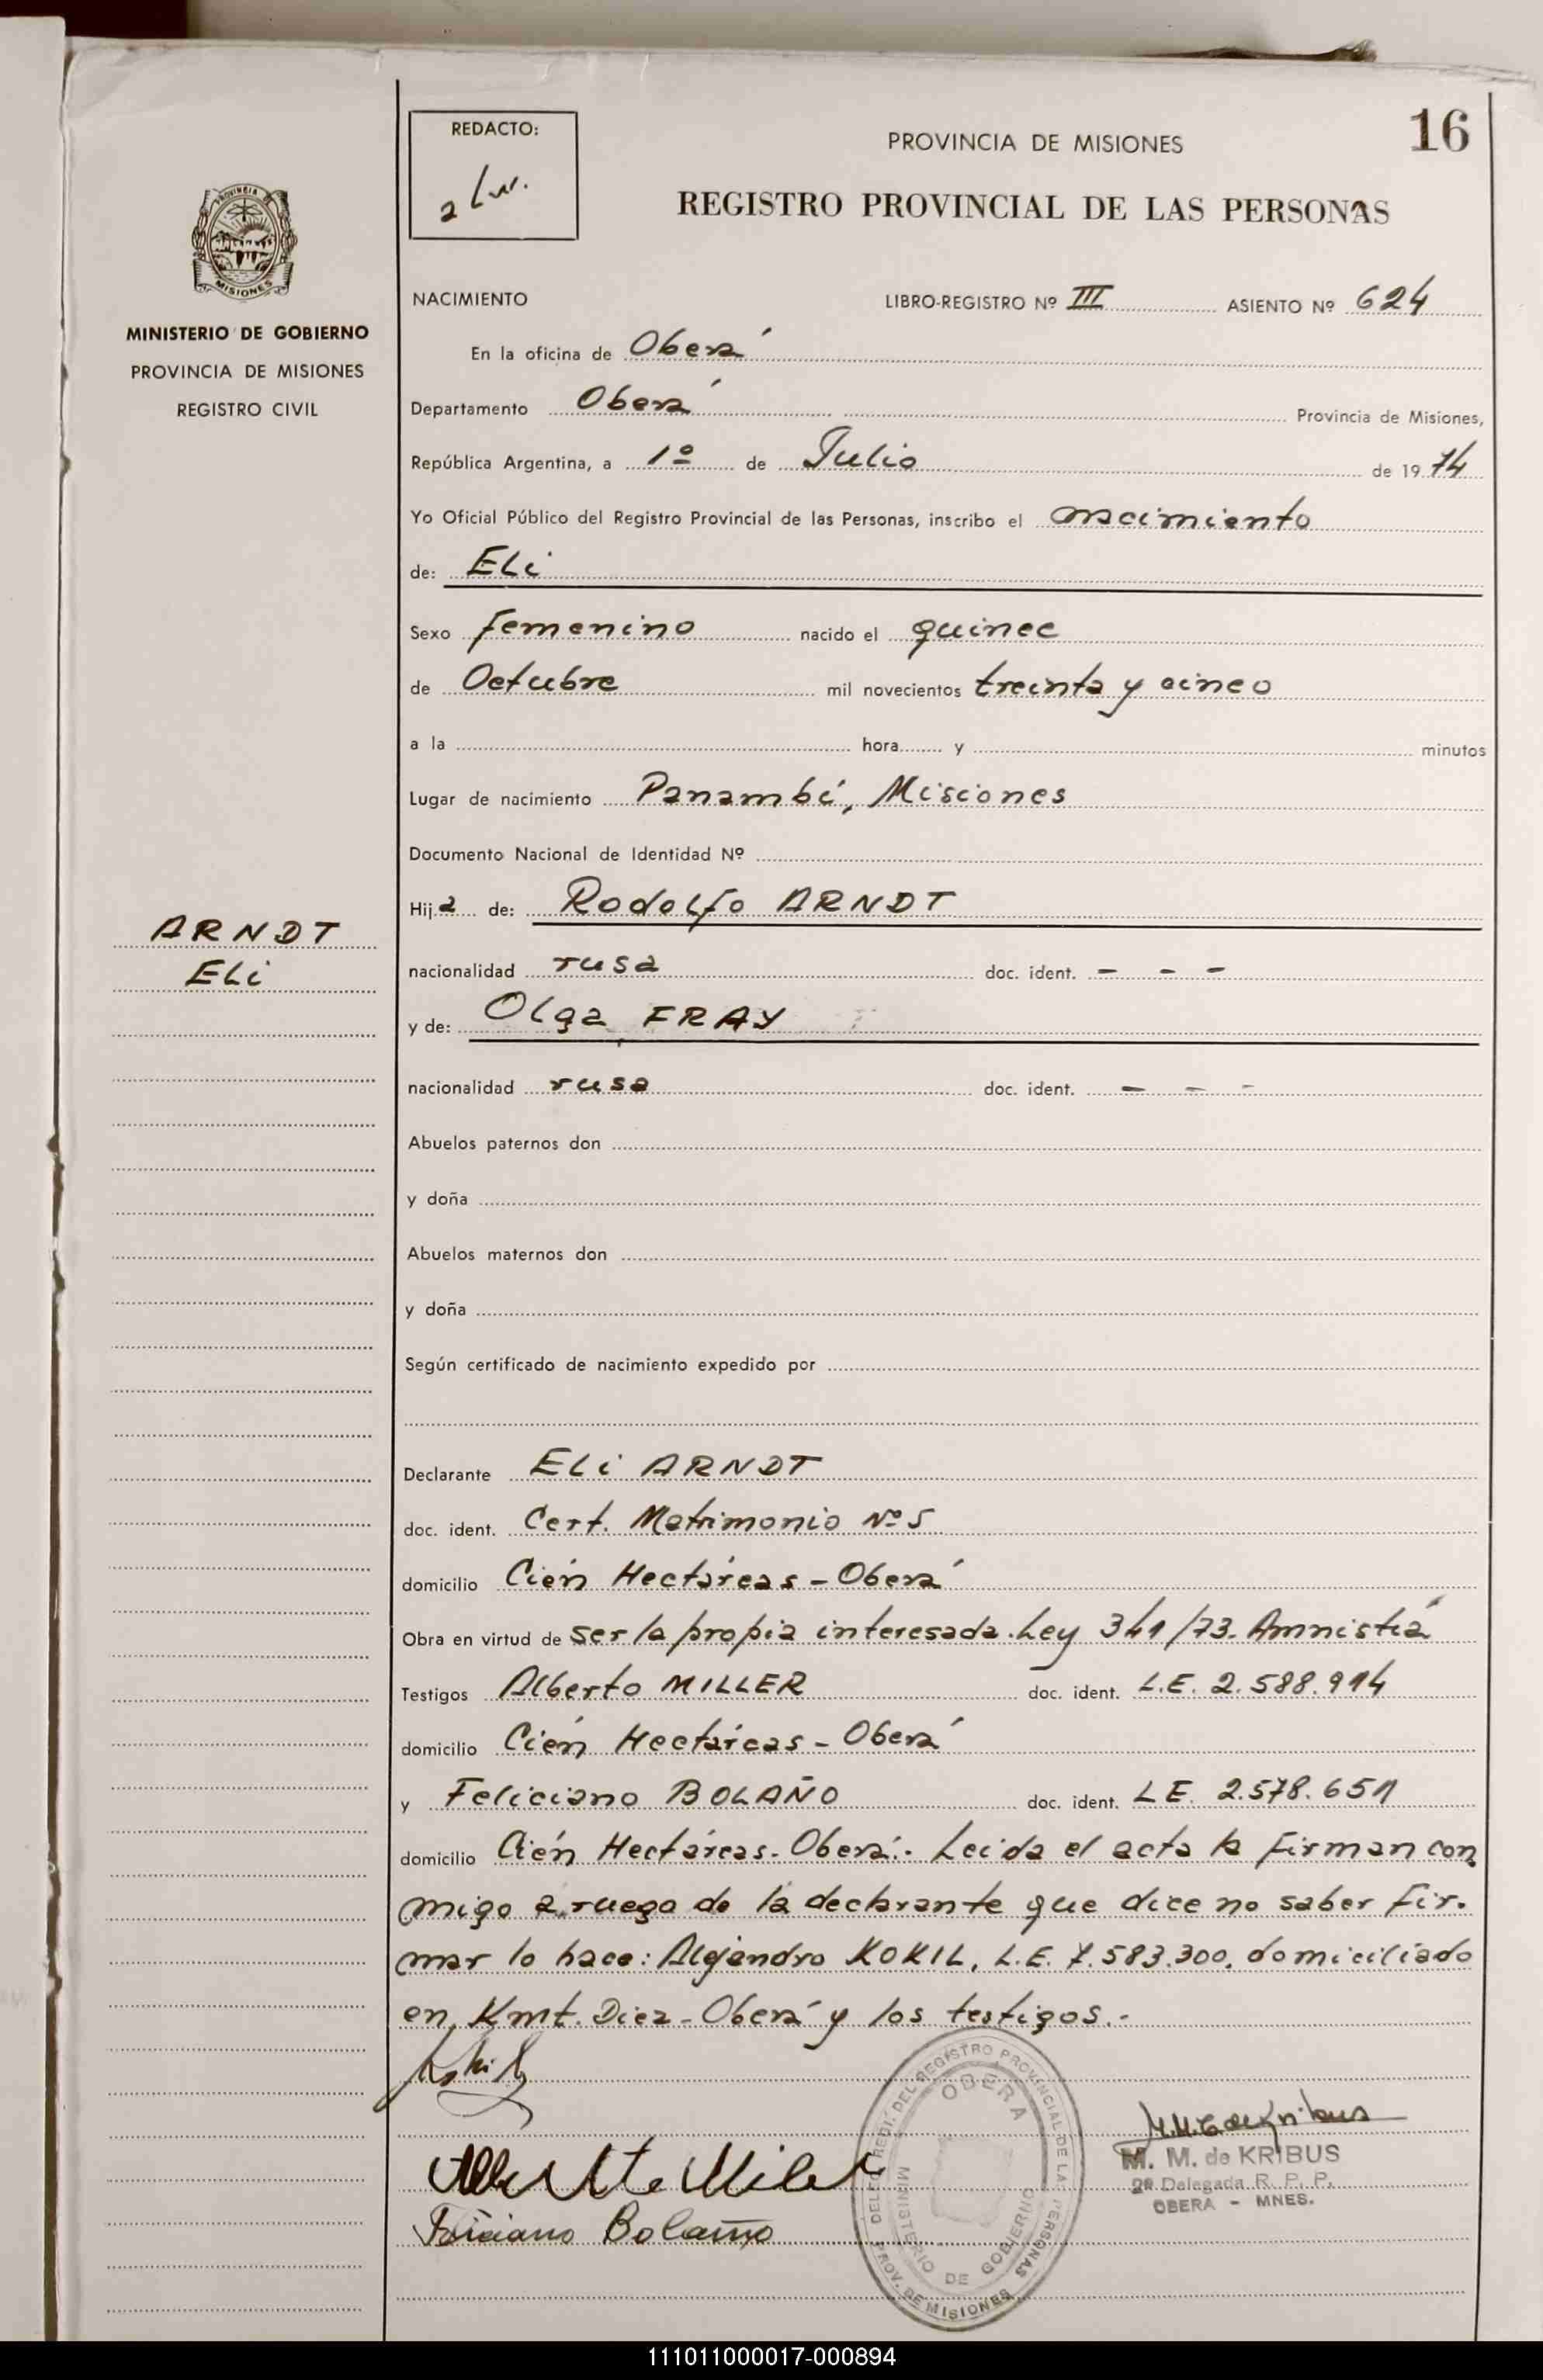 16
REDACTO:
PROVINCIA DE MISIONES
REGISTRO PROVINCIAL DE LAS PERSONAS
PROVINCIA
MISIONES
MINISTERIO DE GOBIERNO
PROVINCIA DE MISIONES
REGISTRO CIVIL
NACIMIENTO LIBRO-REGISTRO Nº III ASIENTO Nº 624
En la oficina de Oberá
Departamento Oberá Provincia de Misiones,
República Argentina, a 1º de Julio de 1974
Yo Oficial Público del Registro Provincial de las Personas, inscribo el nacimiento
de: Eli
Sexo femenino nacido el quince
de Octubre mil novecientos treinta y cinco
a la hora y minutos
Lugar de nacimiento Panambí, Misiones
Documento Nacional de Identidad Nº
Hija de: Rodolfo ARNDT
ARNDT
Eli
nacionalidad rusa doc. ident. - - -
y de: Olga FRAY
nacionalidad rusa doc. ident. - - -
Abuelos paternos don
y doña
Abuelos maternos don
y doña
Según certificado de nacimiento expedido por
Declarante Eli ARNDT
doc. ident. Cert. Matrimonio Nº 5
domicilio Cién Hectáreas - Oberá
Obra en virtud de ser la propia interesada. Ley 341/73. Amnistía
Testigos Alberto MILLER doc. ident. L.E. 2.588.914
domicilio Cién Hectáreas - Oberá
y Feliciano BOLAÑO doc. ident. L.E. 2.578.651
domicilio Cién Hectáreas - Oberá.- Leída el acta la firman con
migo a ruego de la declarante que dice no saber fir-
mar lo hace: Alejandro KOKIL, L.E. 7.583.300, domiciliado
en Kmt. Diez - Oberá y los testigos.-
M. M. de Kribus
M. M. de KRIBUS
2ª Delegada R. P. P.
OBERA - MNES.
Feliciano Bolaño
DEL REGISTRO PROVINCIAL DE LAS PERSONAS
OBERA
MINISTERIO DE GOBIERNO
PROV. DE MISIONES
111011000017-000894